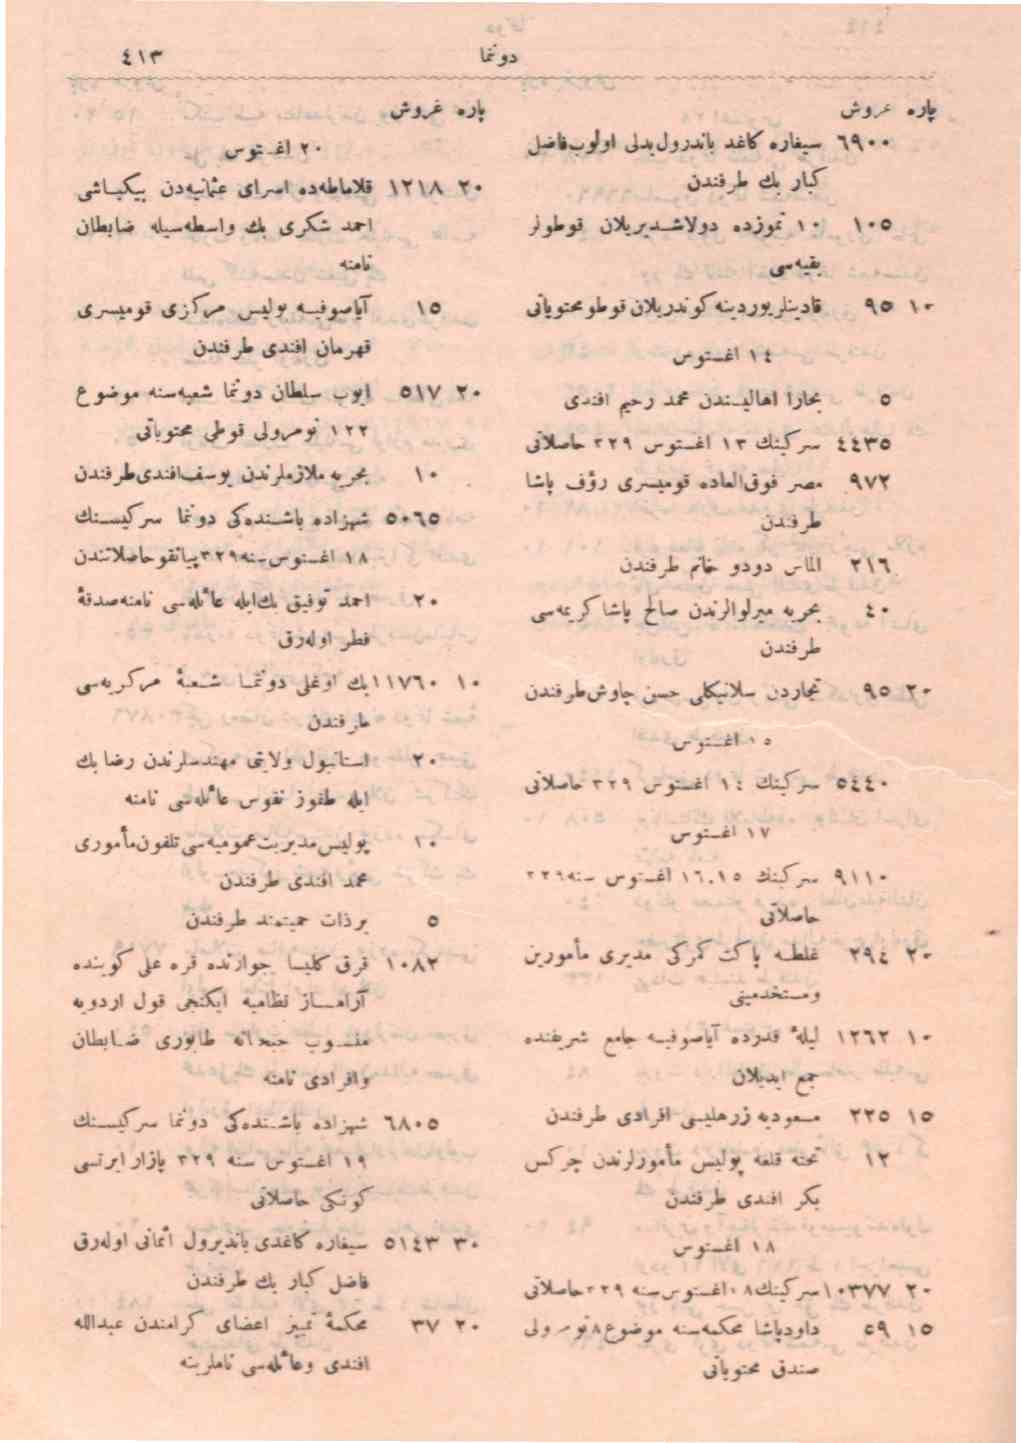 دوننما
٤١٣
پاره غروش
٦٩٠٠ سیغاره کاغد باندرول بدلی اولوب فاضل
کبار بك طرفندن
١٠٥ ١٠ تموزده دولاشدیریلان قوطولر
بقیه‌سی
١٠ ٩٥ قادینلر یوردینه کوندریلان قوطو محتویاتی
١٤ اغستوس
٥ بخارا اهالیسندن محمد رحیم افندی
٤٤٣٥ سرکینك ١٣ اغستوس ٣٢٩ حاصلاتی
٩٧٢ مصر فوق‌العاده قومیسری رؤف پاشا
طرفندن
٢١٦ الماس دودو خانم طرفندن
٤٠ بحریه میرلوالرندن صالح پاشا کریمه‌سی
طرفندن
٢٠ ٩٥ تجاردن سلانیکلی حسن چاوش طرفندن
١٥ اغستوس
٥٤٤٠ سرکینك ١٤ اغستوس ٣٢٩ حاصلاتی
١٧ اغستوس
٩١١٠ سرکینك ١٦،١٥ اغستوس سنه ٣٢٩
حاصلاتی
٢٠ ٢٩٤ غلطه پاکت کمرکی مدیری مأمورین
ومستخدمینی
١٠ ١٢٦٢ لیلهٔ قدرده آیاصوفیه جامع شریفنده
جمع ایدیلان
١٥ ٢٢٥ مسعودیه زرهلیسی افرادی طرفندن
١٢ تخته قلعه پولیس مأمورلرندن چرکس
بکر افندی طرفندن
١٨ اغستوس
٢٠ ١٠٣٧٧ سرکینك ١٨ اغستوس سنه ٣٢٩ حاصلاتی
١٥ ٥٩ داودپاشا محکمه‌سنه موضوع ٨ نومرولی
صندق محتویاتی
پاره غروش
٢٠ اغستوس
٢٠ ١٢١٨ قلاماطه‌ده اسرای عثمانیه‌دن بیکباشی
احمد شکری بك واسطه‌سیله ضابطان
نامنه
١٥ آیاصوفیه پولیس مرکزی قومیسری
قهرمان افندی طرفندن
٢٠ ٥١٧ ایوب سلطان دوننما شعبه‌سنه موضوع
١٢٢ نومرولی قوطی محتویاتی
١٠ بحریه ملازملرندن یوسف افندی طرفندن
٥٠٦٥ شهزاده باشنده‌کی دوننما سرکیسنك
١٨ اغستوس سنه ٣٢٩ پیانقو حاصلاتندن
٢٠ احمد توفیق بك ایله عائله‌سی نامنه صدقهٔ
فطر اوله‌رق
١٠ ١١٧٦٠ بك اوغلی دوننما شعبهٔ مرکزیه‌سی
طرفندن
٢٠ استانبول ولایتی مهندسلرندن رضا بك
ایله طقوز نفوس عائله‌سی نامنه
١٠ پولیس مدیریت عمومیه‌سی تلفون مأموری
محمد افندی طرفندن
٥ برذات حمیتمند طرفندن
١٠٨٢ قرق کلیسا جوارنده قره علی کوینده
آرامساز نظامیه ایکنجی قول اردویه
منسوب جبخانه طابوری ضابطان
وافرادی نامنه
٦٨٠٥ شهزاده باشنده‌کی دوننما سرکیسنك
١٩ اغستوس سنه ٣٢٩ پازار ایرتسی
کونکی حاصلاتی
٣٠ ٥١٤٣ سیغاره کاغدی باندیرول اثمانی اوله‌رق
فاضل کبار بك طرفندن
٢٠ ٣٧ محکمهٔ تمییز اعضای کرامندن عبدالله
افندی وعائله‌سی ناملرینه